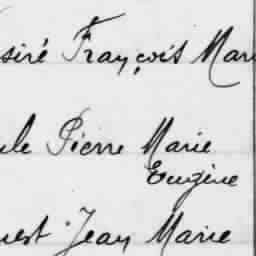 siré François Mari
ule Pierre Marie
Eugène
uest Jean Marie